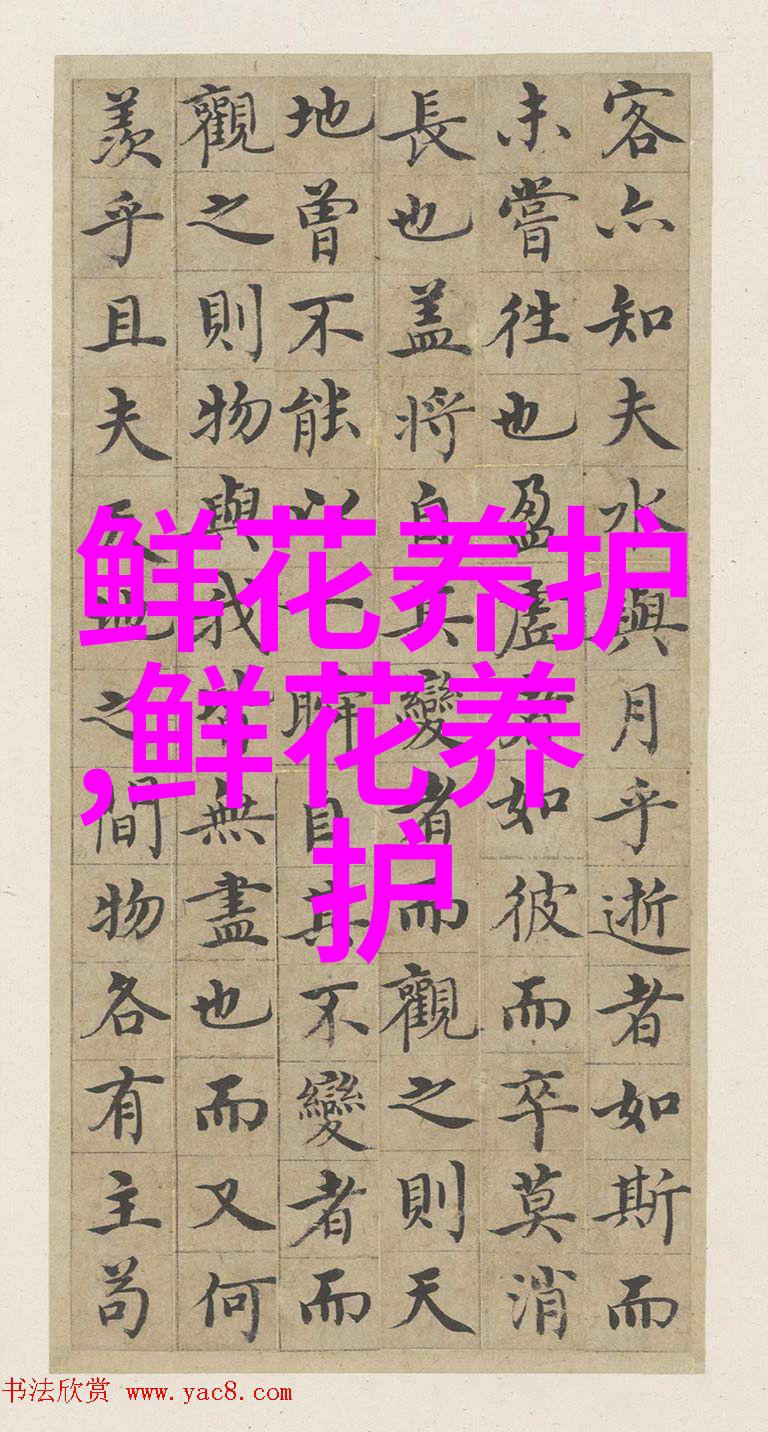 客亦知夫水與月乎逝者如斯而
未嘗往也盈虛者如彼而卒莫消
長也盖將自其變者而觀之則天
地曾不能以一瞬自其不變者而
觀之則物與我皆無盡也而又何
羨乎且夫天地之間物各有主苟
鲜花养护
,鲜花养
护
书法欣赏 www.yac8.com